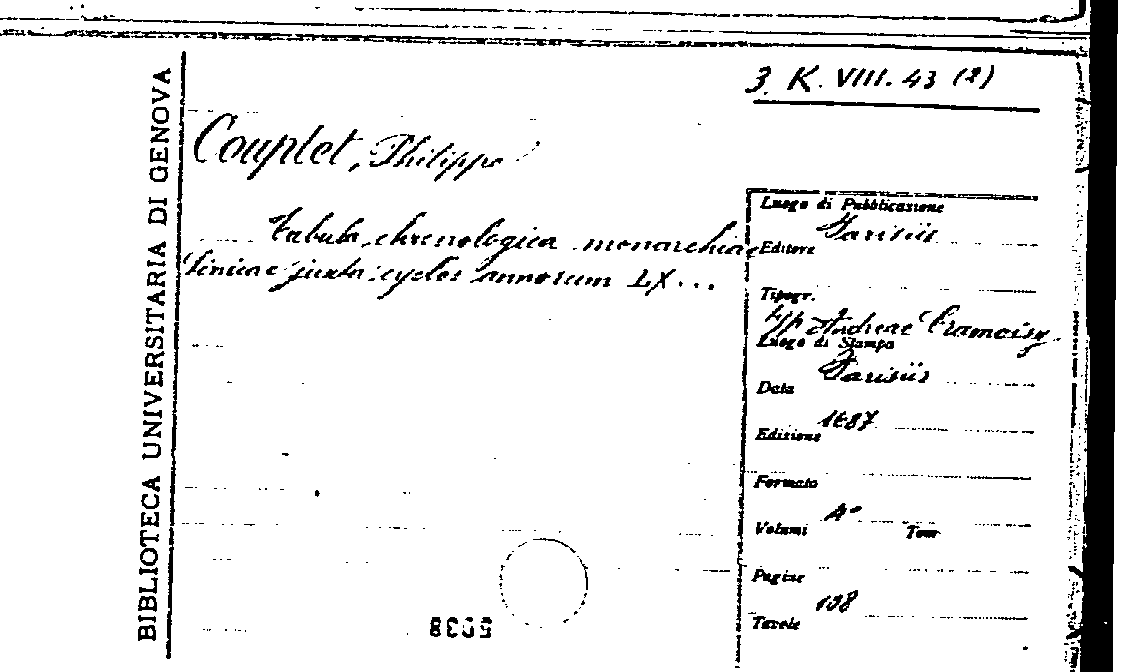 3. K. VIII. 43 (2)
BIBLIOTECA UNIVERSITARIA DI GENOVA
Couplet, Philippe
Tabula chronologica monarchiae
Sinicae juxta cyclos annorum LX...
Luogo di Pubblicazione
Parisiis
Editore
Tipogr.
typ. Andreae Cramoisy
Luogo di Stampa
Parisiis
Data
1687
Edizione
Formato
4°
Volumi Tomi
Pagine
108
Tavole
5038